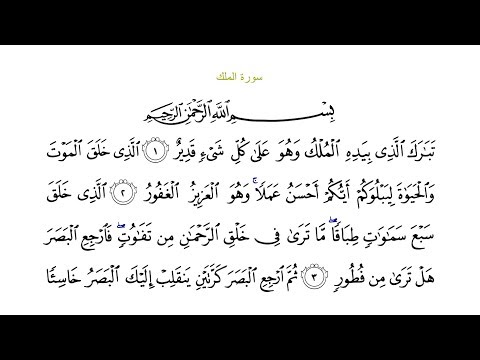 سورة الملك
بِسْمِ ٱللَّهِ ٱلرَّحْمَٰنِ ٱلرَّحِيمِ
تَبَٰرَكَ ٱلَّذِى بِيَدِهِ ٱلْمُلْكُ وَهُوَ عَلَىٰ كُلِّ شَىْءٍ قَدِيرٌ ١ ٱلَّذِى خَلَقَ ٱلْمَوْتَ
وَٱلْحَيَوٰةَ لِيَبْلُوَكُمْ أَيُّكُمْ أَحْسَنُ عَمَلًا ۚ وَهُوَ ٱلْعَزِيزُ ٱلْغَفُورُ ٢ ٱلَّذِى خَلَقَ
سَبْعَ سَمَٰوَٰتٍ طِبَاقًا ۖ مَّا تَرَىٰ فِى خَلْقِ ٱلرَّحْمَٰنِ مِن تَفَٰوُتٍ ۖ فَٱرْجِعِ ٱلْبَصَرَ
هَلْ تَرَىٰ مِن فُطُورٍ ٣ ثُمَّ ٱرْجِعِ ٱلْبَصَرَ كَرَّتَيْنِ يَنقَلِبْ إِلَيْكَ ٱلْبَصَرُ خَاسِئًا